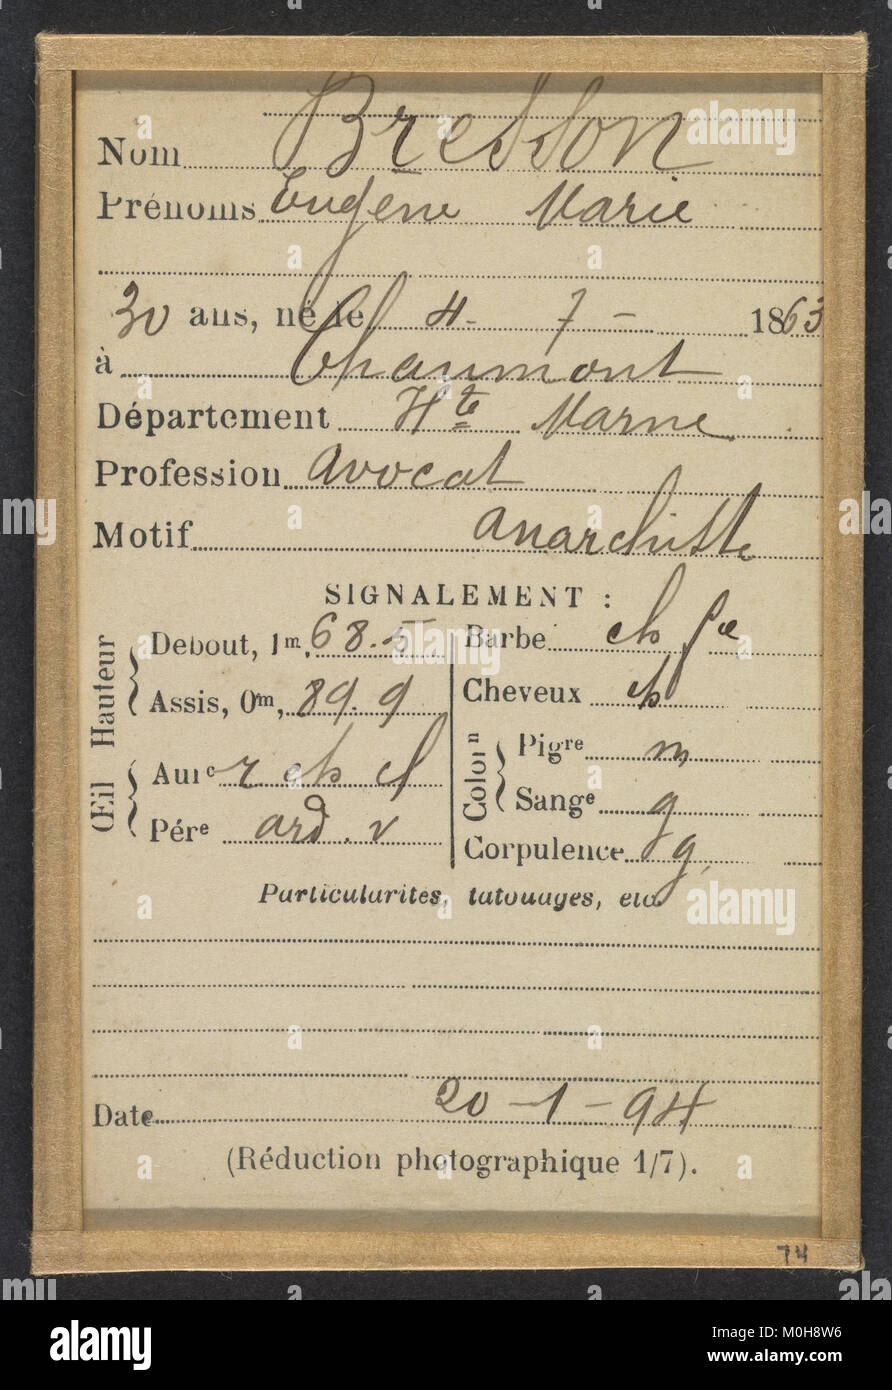 Nom Bresson
Prénoms Eugène Marie
30 ans, né le 4 - 7 - 1863
à Chaumont
Département Hte Marne
Profession avocat
Motif anarchiste
SIGNALEMENT :
Hauteur
Debout, 1m, 68.5
Assis, 0m, 89.9
Œil
Aure r ch cl
Pére ard. v
Barbe ch fce
Cheveux ch
Colorn
Pigre m
Sange g
Corpulence g
Particularités, tatouages, etc.
Date 20 - 1 - 94
(Réduction photographique 1/7).
74
alamy
alamy
Image ID: M0H8W6
www.alamy.com